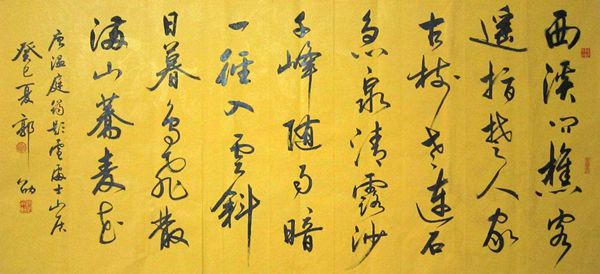 西溪问樵客
遥指楚人家
古树老連石
急泉清露沙
千峰随雨暗
一徑入雲斜
日暮鳥飛散
满山蕎麦花
唐温庭筠题盧處士山居
癸巳夏郭